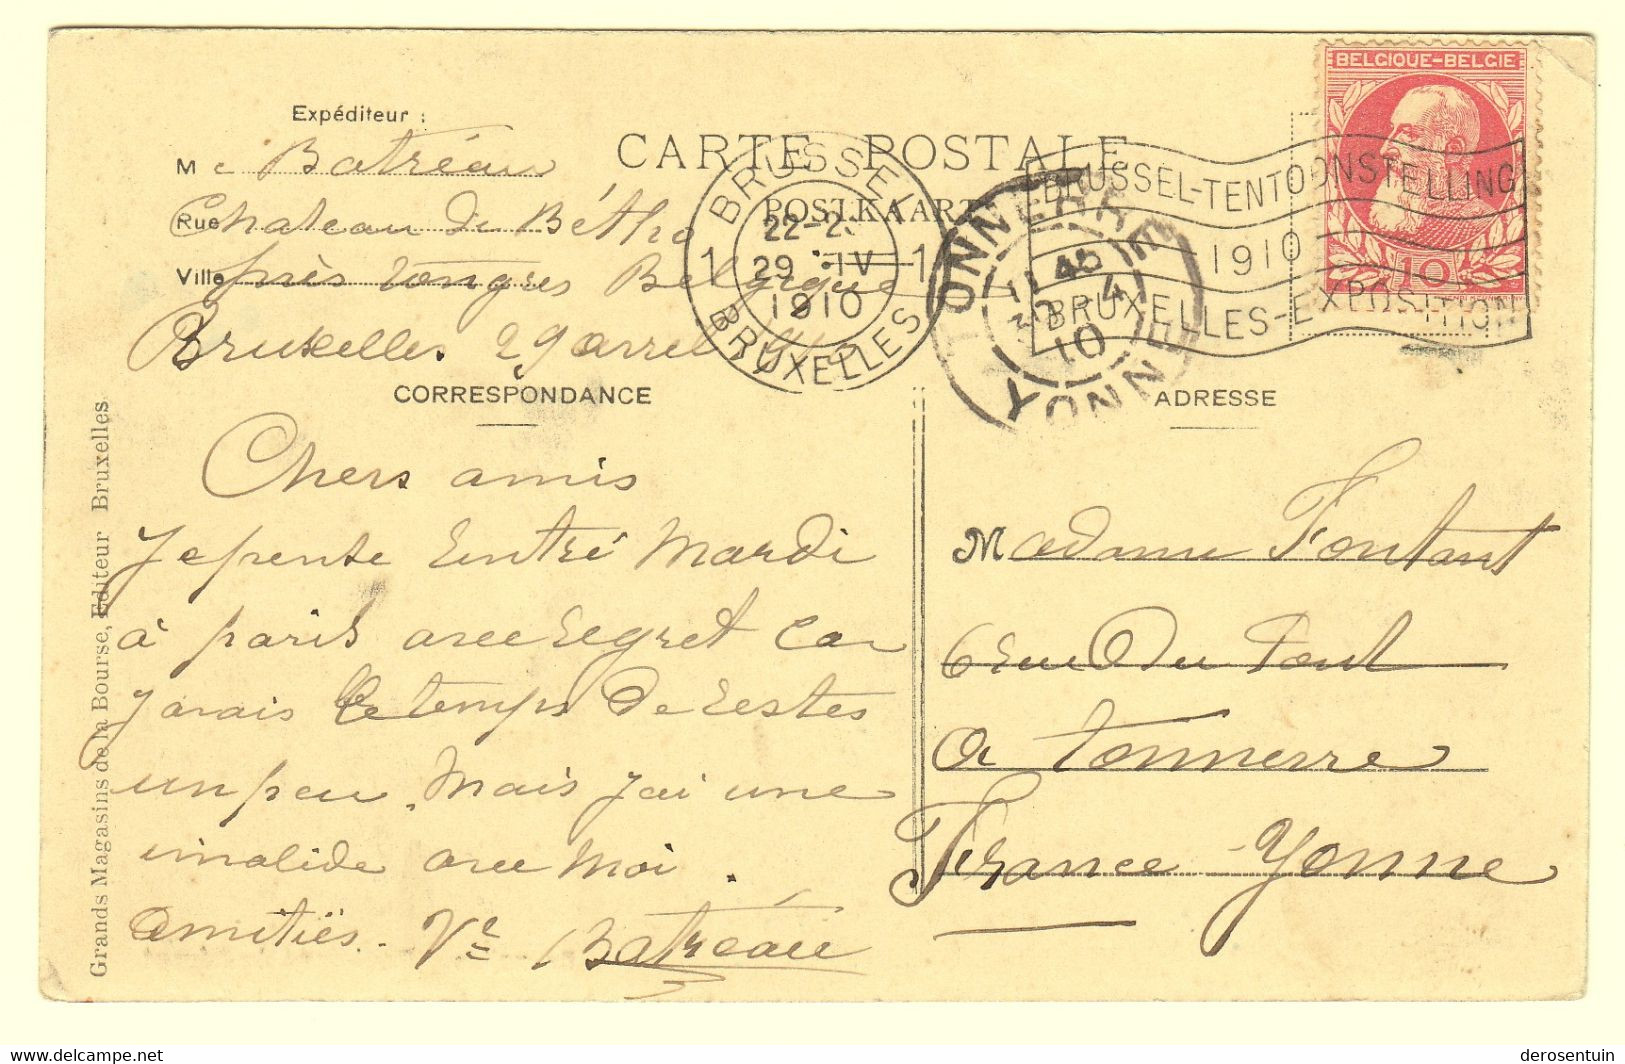 BELGIQUE-BELGIE
10
Expéditeur :
CARTE POSTALE
POSTKAART
M e Batréau
Rue Chateau du Bétho
Ville près tongres Belgique
Bruxelles 29 avrel
BRUSSEL
22-2
1 29 IV 1
1910
BRUXELLES
TONNERRE
11 45
30 - 4
10
YONNE
BRUSSEL-TENTOONSTELLING
1910
BRUXELLES-EXPOSITION
CORRESPONDANCE
ADRESSE
Chers amis
Je pense Entré Mardi
à paris avec regret car
Javais le temps de restes
un peu. Mais j'ai une
invalide avec Moi.
amitiés. Ve Batréau
Madame Fontant
6 rue Du Pont
a tonnerre
France Yonne
Grands Magasins de la Bourse, Editeur Bruxelles
delcampe.net
derosentuin